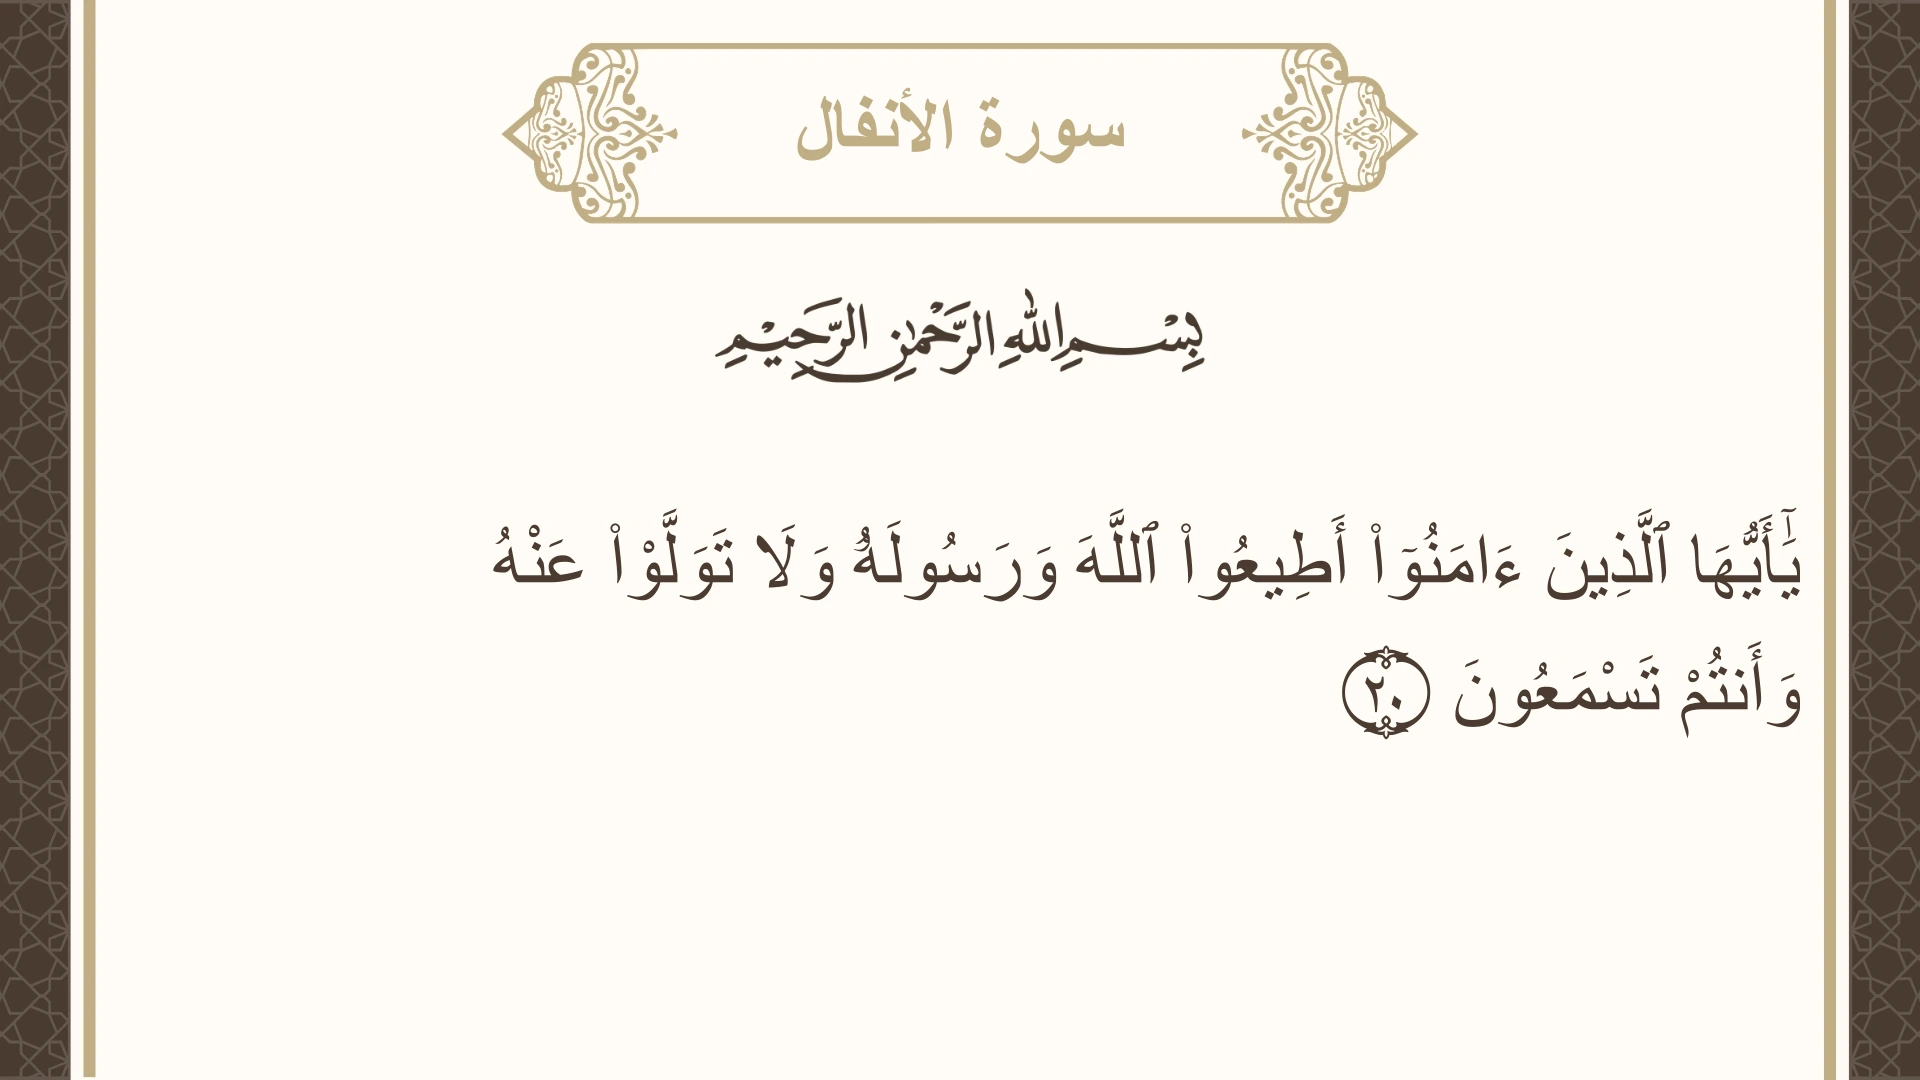 سورة الأنفال
بِسْمِ اللهِ الرَّحْمٰنِ الرَّحِيْمِ
يَٰٓأَيُّهَا ٱلَّذِينَ ءَامَنُوٓا۟ أَطِيعُوا۟ ٱللَّهَ وَرَسُولَهُۥ وَلَا تَوَلَّوْا۟ عَنْهُ
وَأَنتُمْ تَسْمَعُونَ ٢٠